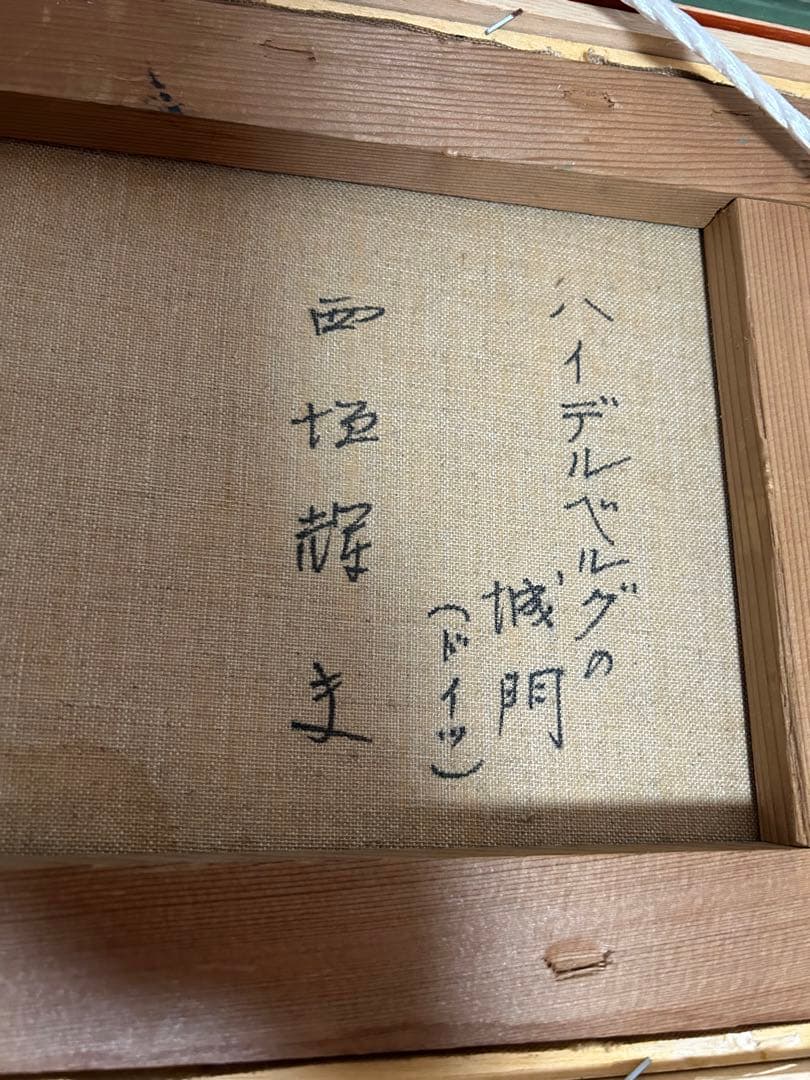 ハイデルベルグの
城門
(ドイツ)
西垣輝